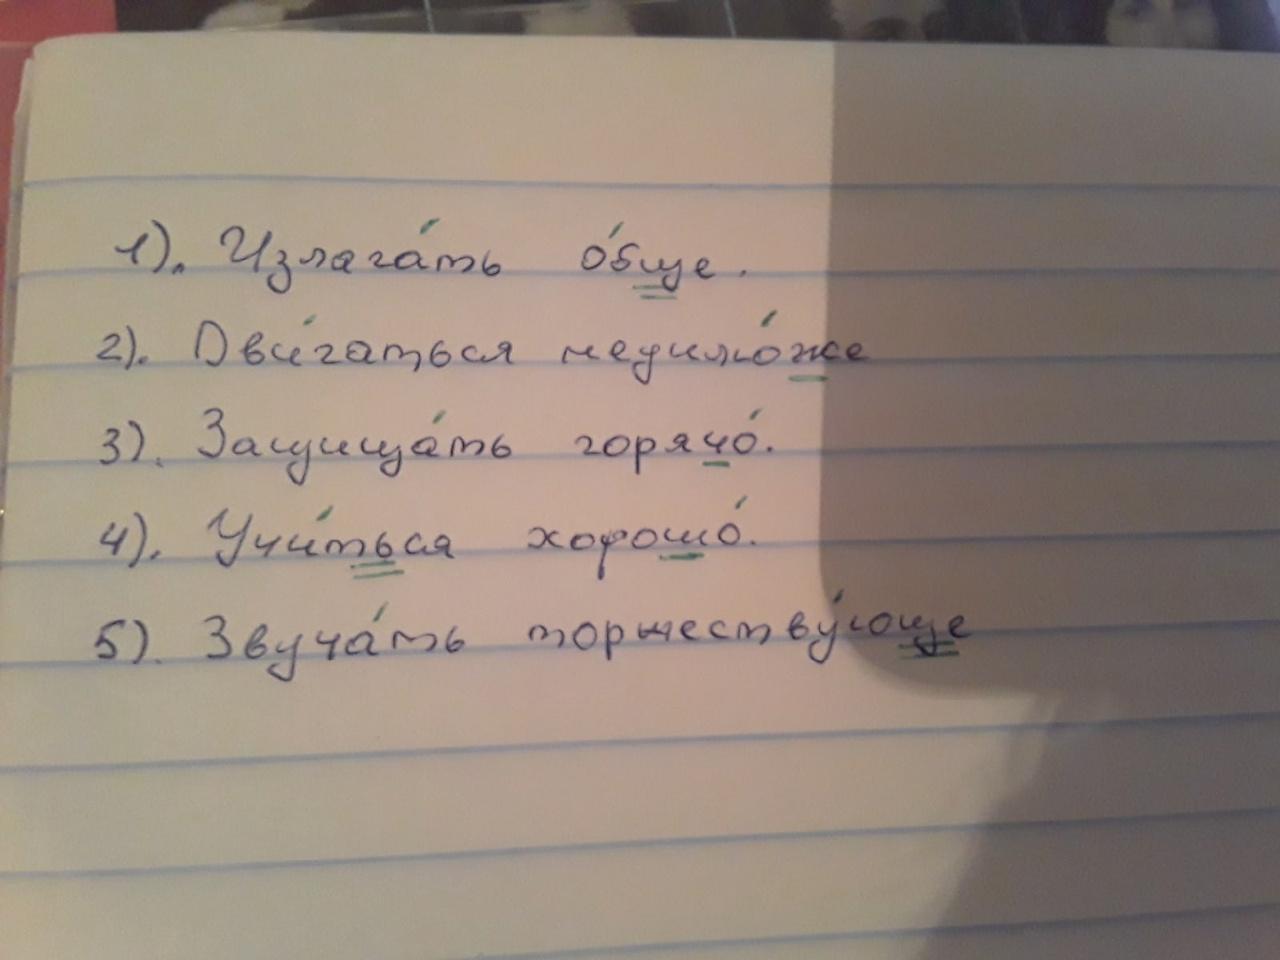 1). Излага́ть о́бще.
2). Дви́гаться неуклю́же
3). Защища́ть горячо́.
4). Учи́ться хорошо́.
5). Звуча́ть торжеству́юще